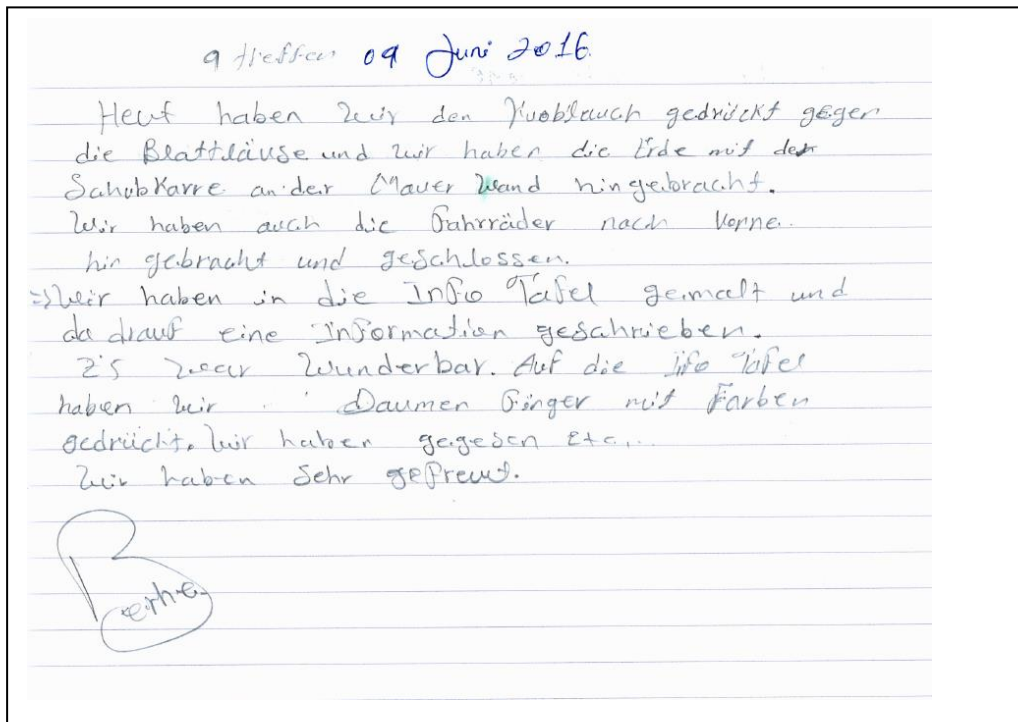 9 treffen 09 Juni 2016
Heut haben wir den Knoblauch gedrückt gegen
die Blattläuse und wir haben die Erde mit der
Schubkarre an der Mauer Wand hingebracht.
Wir haben auch die Fahrräder nach vorne
hin gebracht und geschlossen.
=> Wir haben in die Info Tafel gemalt und
da drauf eine Information geschrieben.
Es war Wunderbar. Auf die Info Tafel
haben wir Daumen Finger mit Farben
gedrückt. Wir haben gegesen Etc...
Wir haben Sehr gefreut.
Berhe